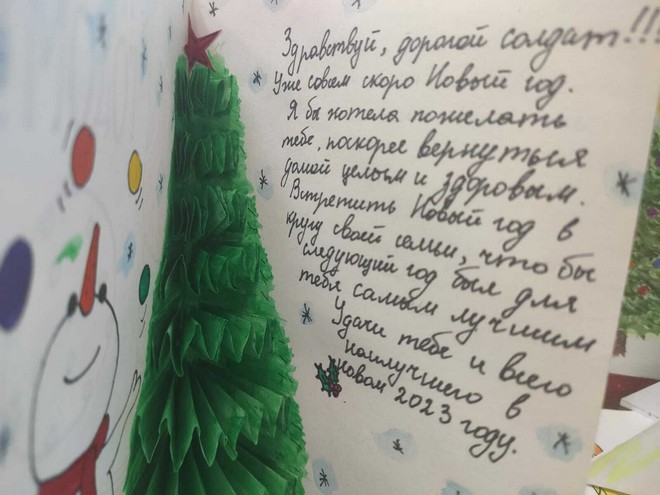 Здравствуй, дорогой солдат!!!
Уже совсем скоро Новый год.
Я бы хотела пожелать
тебе, поскорее вернуться
домой целым и здоровым.
Встретить Новый год в
кругу своей семьи, что бы
следующий год был для
тебя самым лучшим
Удачи тебе и всего
наилучшего в
новом 2023 году.